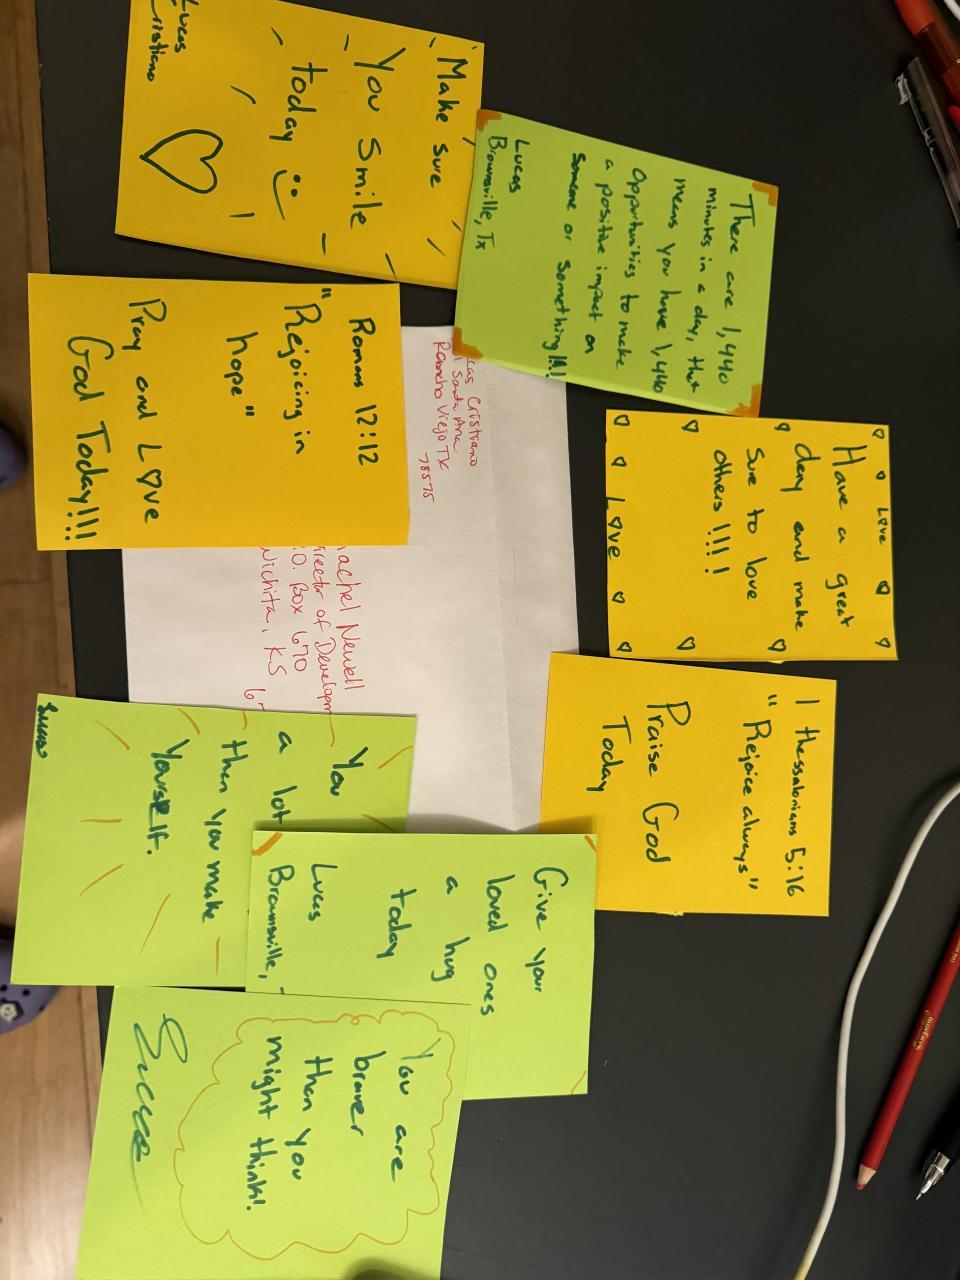 Make sure
You Smile
today
Lucas
Cristiano
There are 1,440
minutes in a day, that
means you have 1,440
Opportunities to make
a positive impact on
someone or something!!!
Lucas
Brownsville, Tx
Romans 12:12
"Rejoicing in
hope"
Pray and Love
God Today!!!
cas Cristiano
1 Santa Ana
Rancho Viejo TX
78575
achel Newell
rector of Developm
.O. Box 670
Wichita, KS
67
Love
Have a great
day and make
Sure to love
others!!!!
Love
1 thessalonians 5:16
"Rejoice always"
Praise God
Today
You
a lot
then you make
Yourself.
Lucas
Give your
loved ones
a hug
today
Lucas
Brownsville,
You are
braver
than you
might think!
Lucas